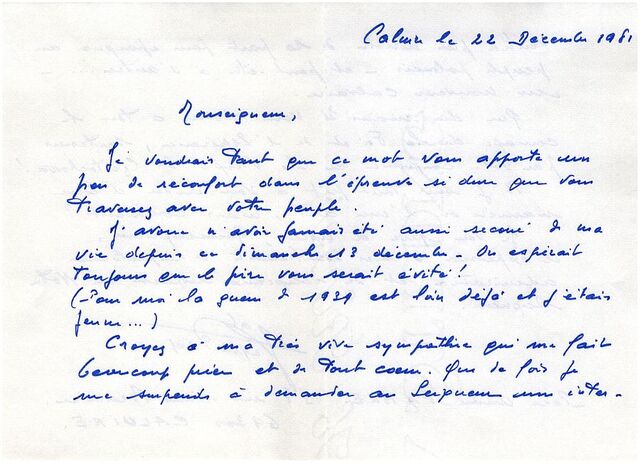 Caluire le 22 Décembre 1981
Monseigneur,
Je voudrais tant que ce mot vous apporte un
peu de réconfort dans l'épreuve si dure que vous
traversez avec votre peuple.
J'avoue n'avoir jamais été aussi secoué de ma
vie depuis ce dimanche 13 décembre - On espérait
toujours que le pire vous serait évité !
(- Pour moi la guerre de 1939 est loin déjà et j'étais
jeune...)
Croyez à ma très vive sympathie qui me fait
beaucoup prier et de tout coeur. Que de fois je
me surprends à demander au Seigneur une inter-
69300 CALUIRE